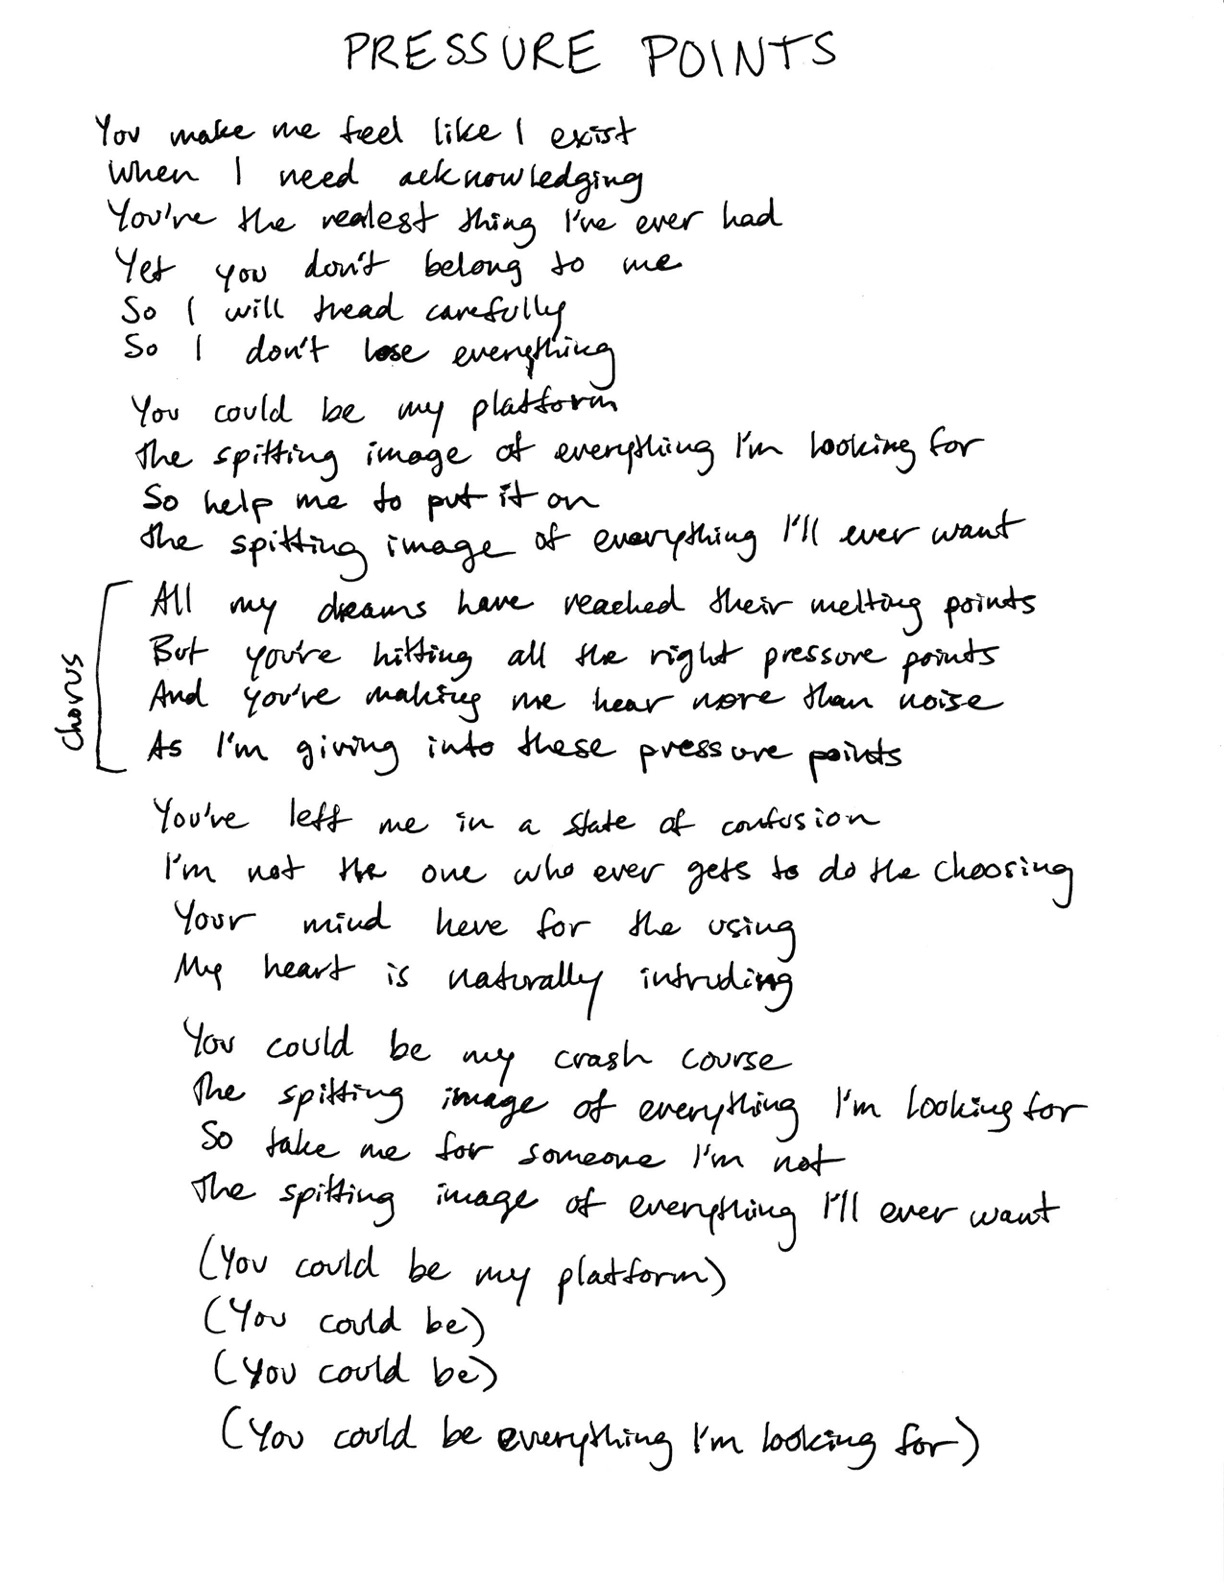 PRESSURE POINTS
You make me feel like I exist
When I need acknowledging
You're the realest thing I've ever had
Yet you don't belong to me
So I will tread carefully
So I don't lose everything
You could be my platform
The spitting image of everything I'm looking for
So help me to put it on
The spitting image of everything I'll ever want
Chorus
All my dreams have reached their melting points
But you're hitting all the right pressure points
And you're making me hear more than noise
As I'm giving into these pressure points
You've left me in a state of confusion
I'm not the one who ever gets to do the choosing
Your mind here for the using
My heart is naturally intruding
You could be my crash course
The spitting image of everything I'm looking for
So take me for someone I'm not
The spitting image of everything I'll ever want
(You could be my platform)
(You could be)
(You could be)
(You could be everything I'm looking for)